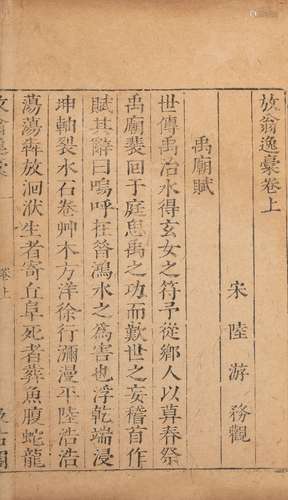 放翁逸稾卷上
宋陸游務觀
禹廟賦
世傳禹治水得玄女之符予從鄉人以暮春祭
禹廟裴回于庭思禹之功而歎世之妄稽首作
賦其辭曰嗚呼在昔鴻水之為害也浮乾端浸
坤軸裂水石卷艸木方洋徐行瀰漫平陸浩浩
蕩蕩犇放洄洑生者寄丘阜死者葬魚腹蛇龍
卷上